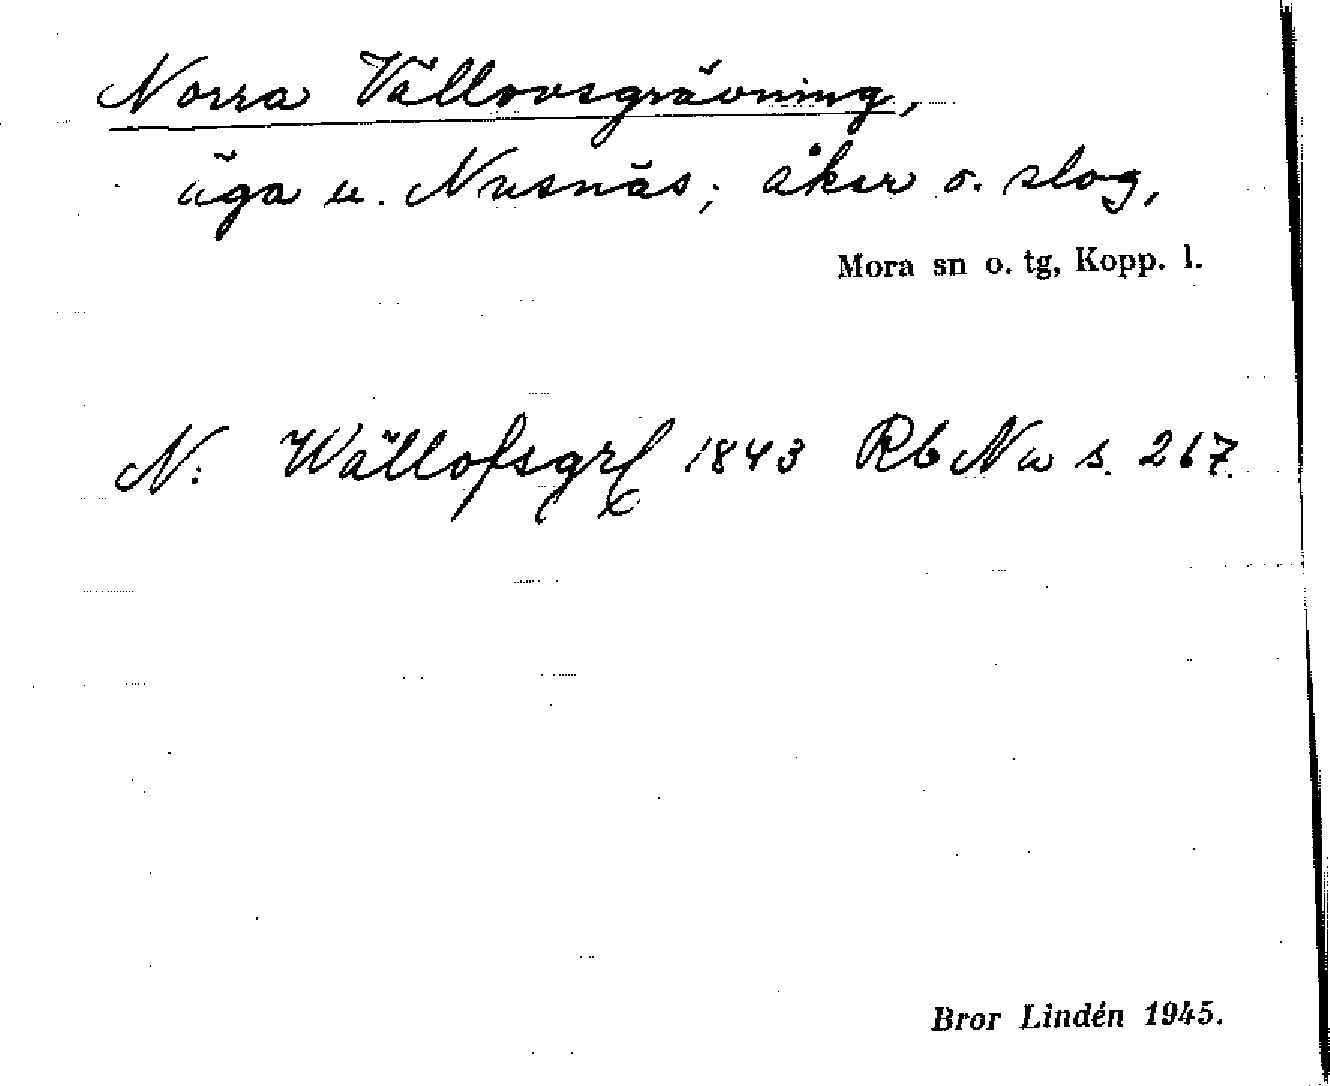 Norra Vällovsgrävning,
äga u. Nusnäs; åker o. slog,
Mora sn o. tg, Kopp. l.
N: Wällofsgrf 1843 Rb Nu s. 267.
Bror Lindén 1945.